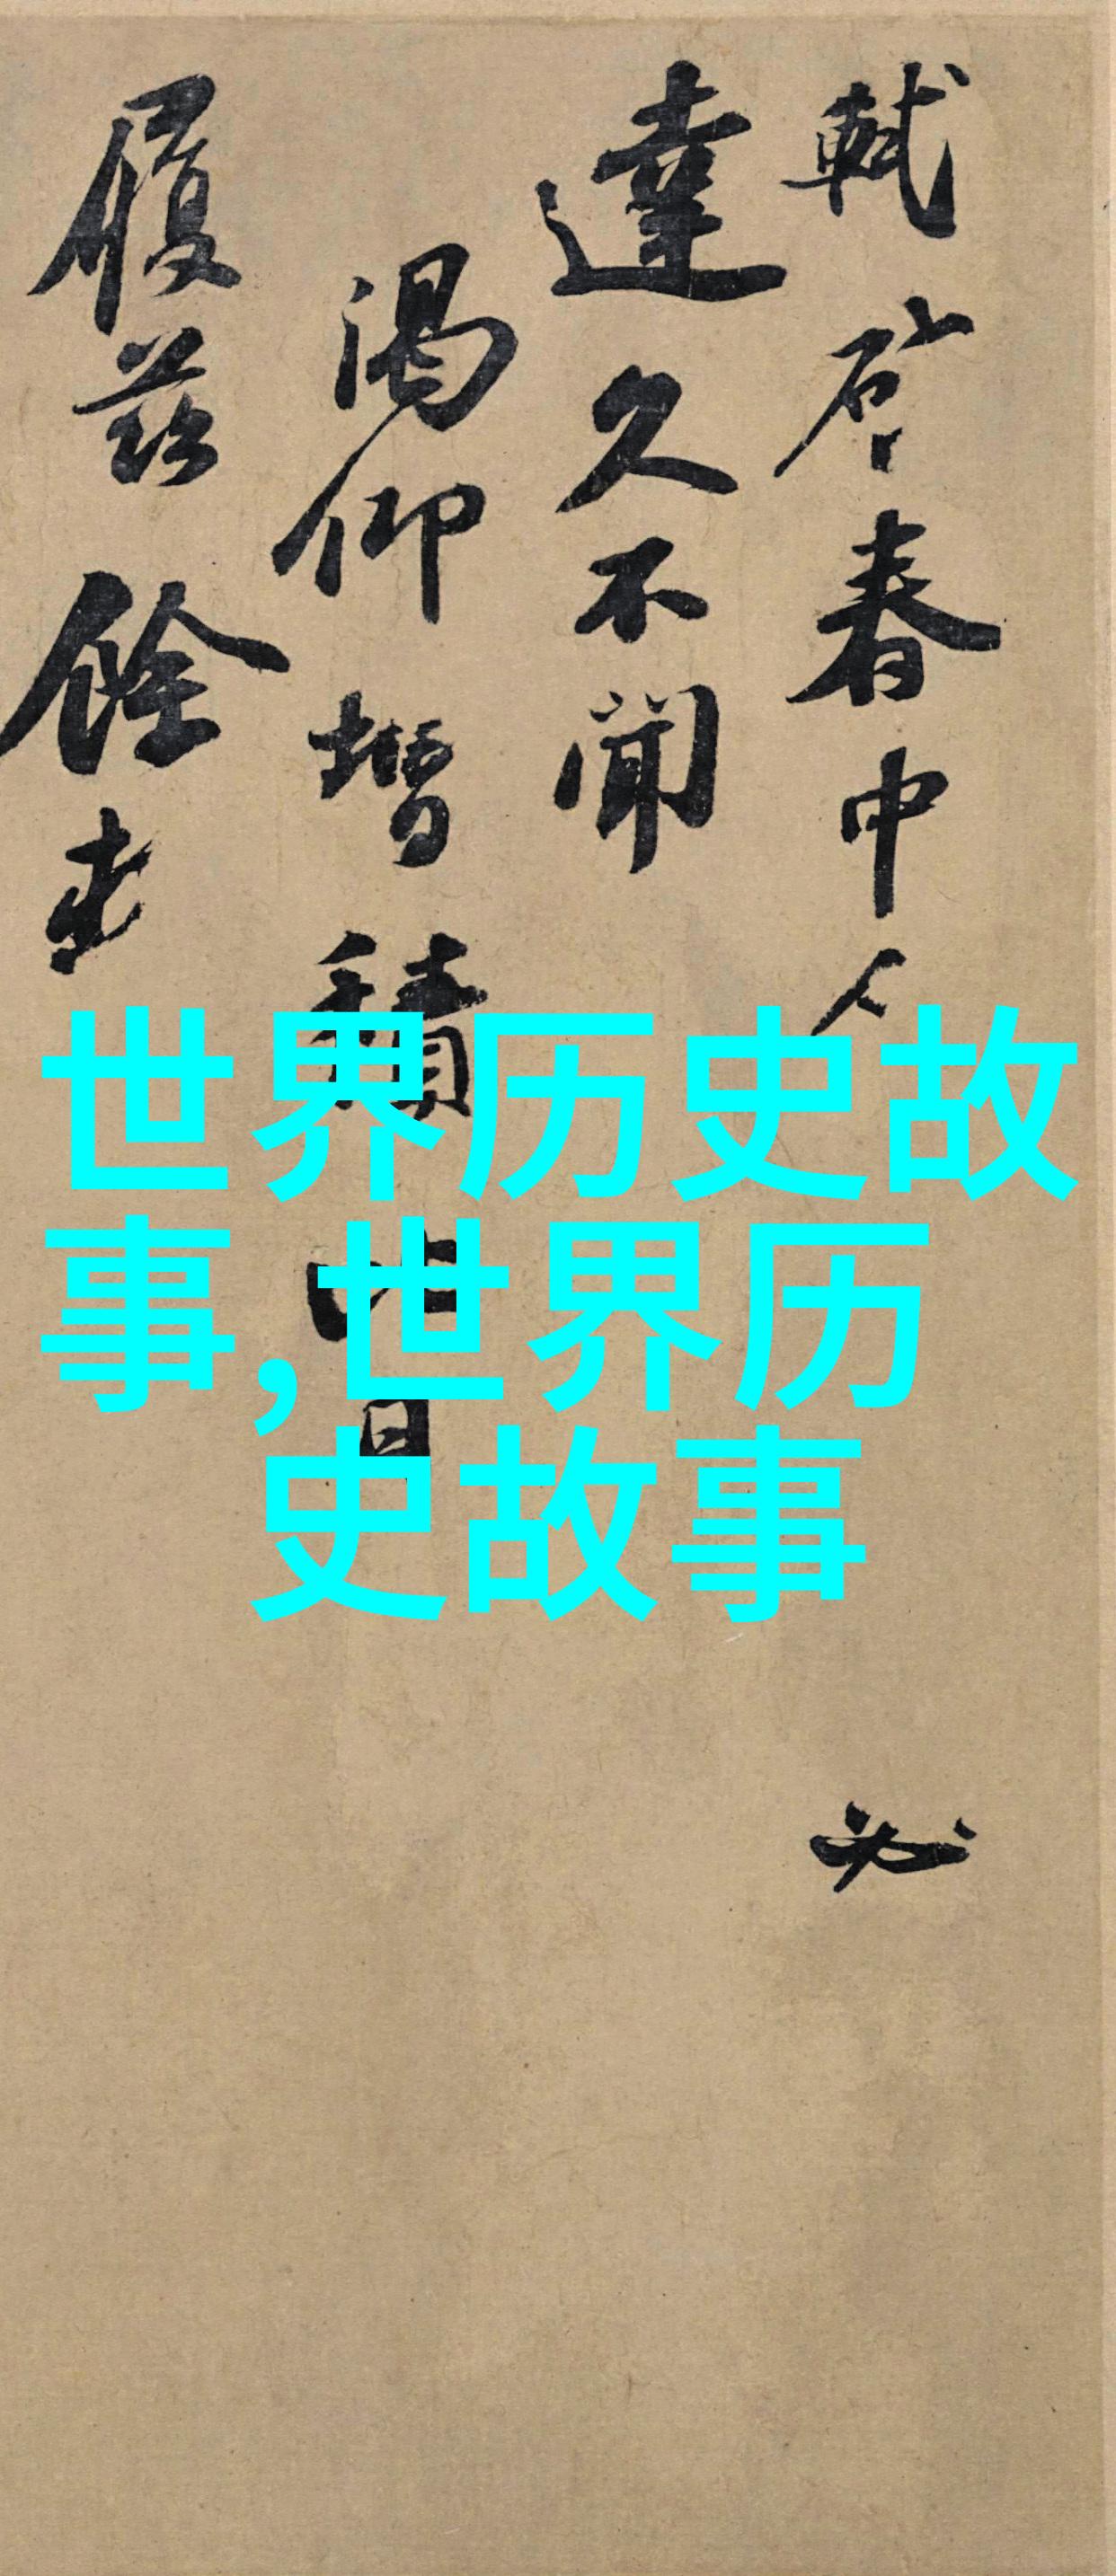 軾啓春中人必
達久不聞
渴仰增積比日
履茲餘
世界历史故
事,世界历
史故事